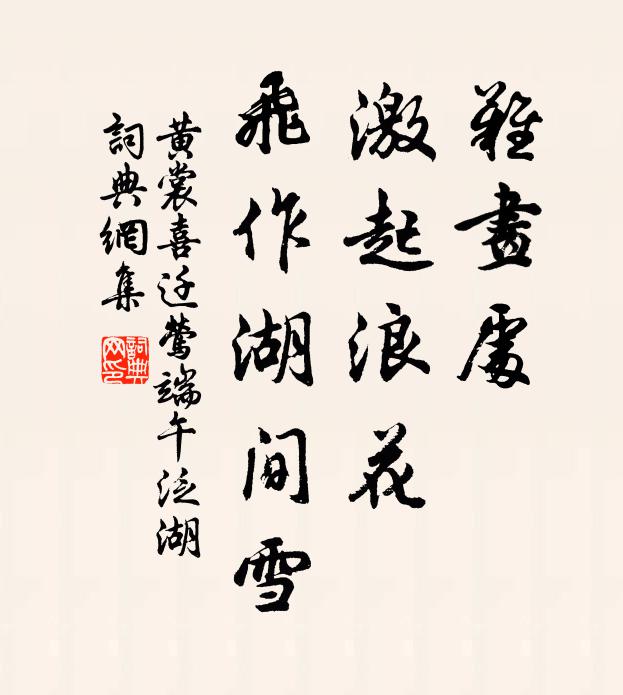 難畫處
激起浪花
飛作湖間雪
黄裳喜迁鶯端午泛湖
詞典網集
詞典
网印